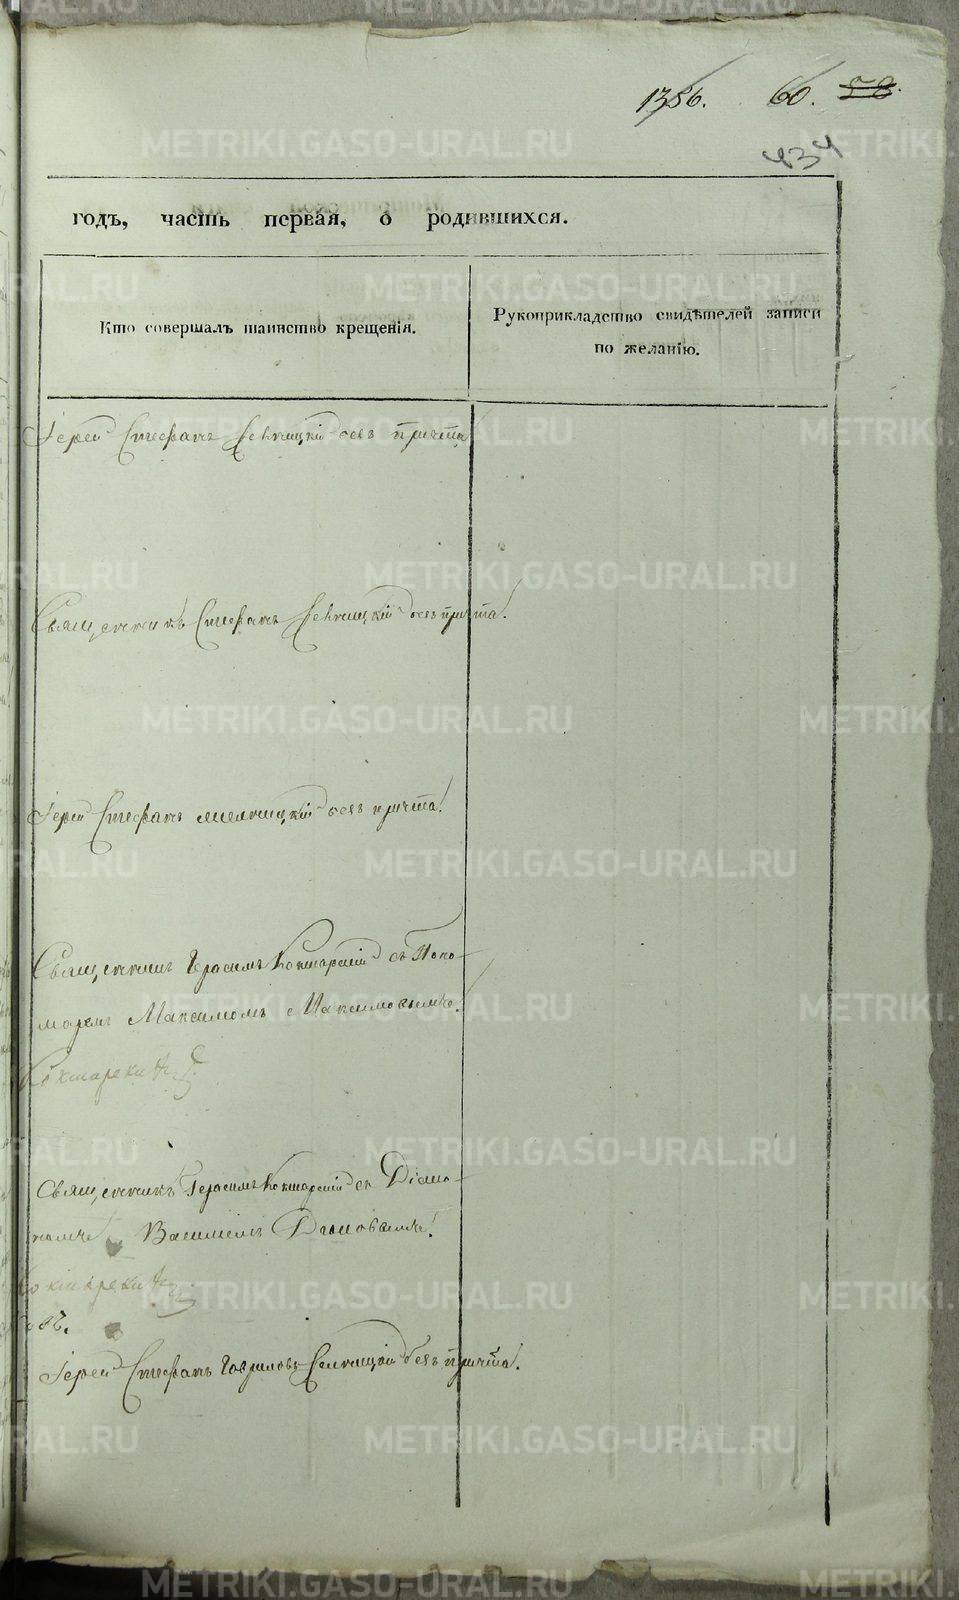 1356. 60. 58.
434
годъ, часть первая, о родившихся.
Кто совершалъ таинство крещенія.
Рукоприкладство свидѣтелей записи
по желанію.
Іерей Стефанъ безъ причта
Священникъ Стефанъ безъ причта.
Іерей Стефанъ безъ причта.
Священникъ Герасимъ Кокшарскій съ Поно-
маремъ Максимомъ Максимовымъ.
Священникъ Герасимъ Кокшарскій съ Діако-
Василіемъ
Іерей Стефанъ Гавриловъ безъ причта.
METRIKI.GASO-URAL.RU